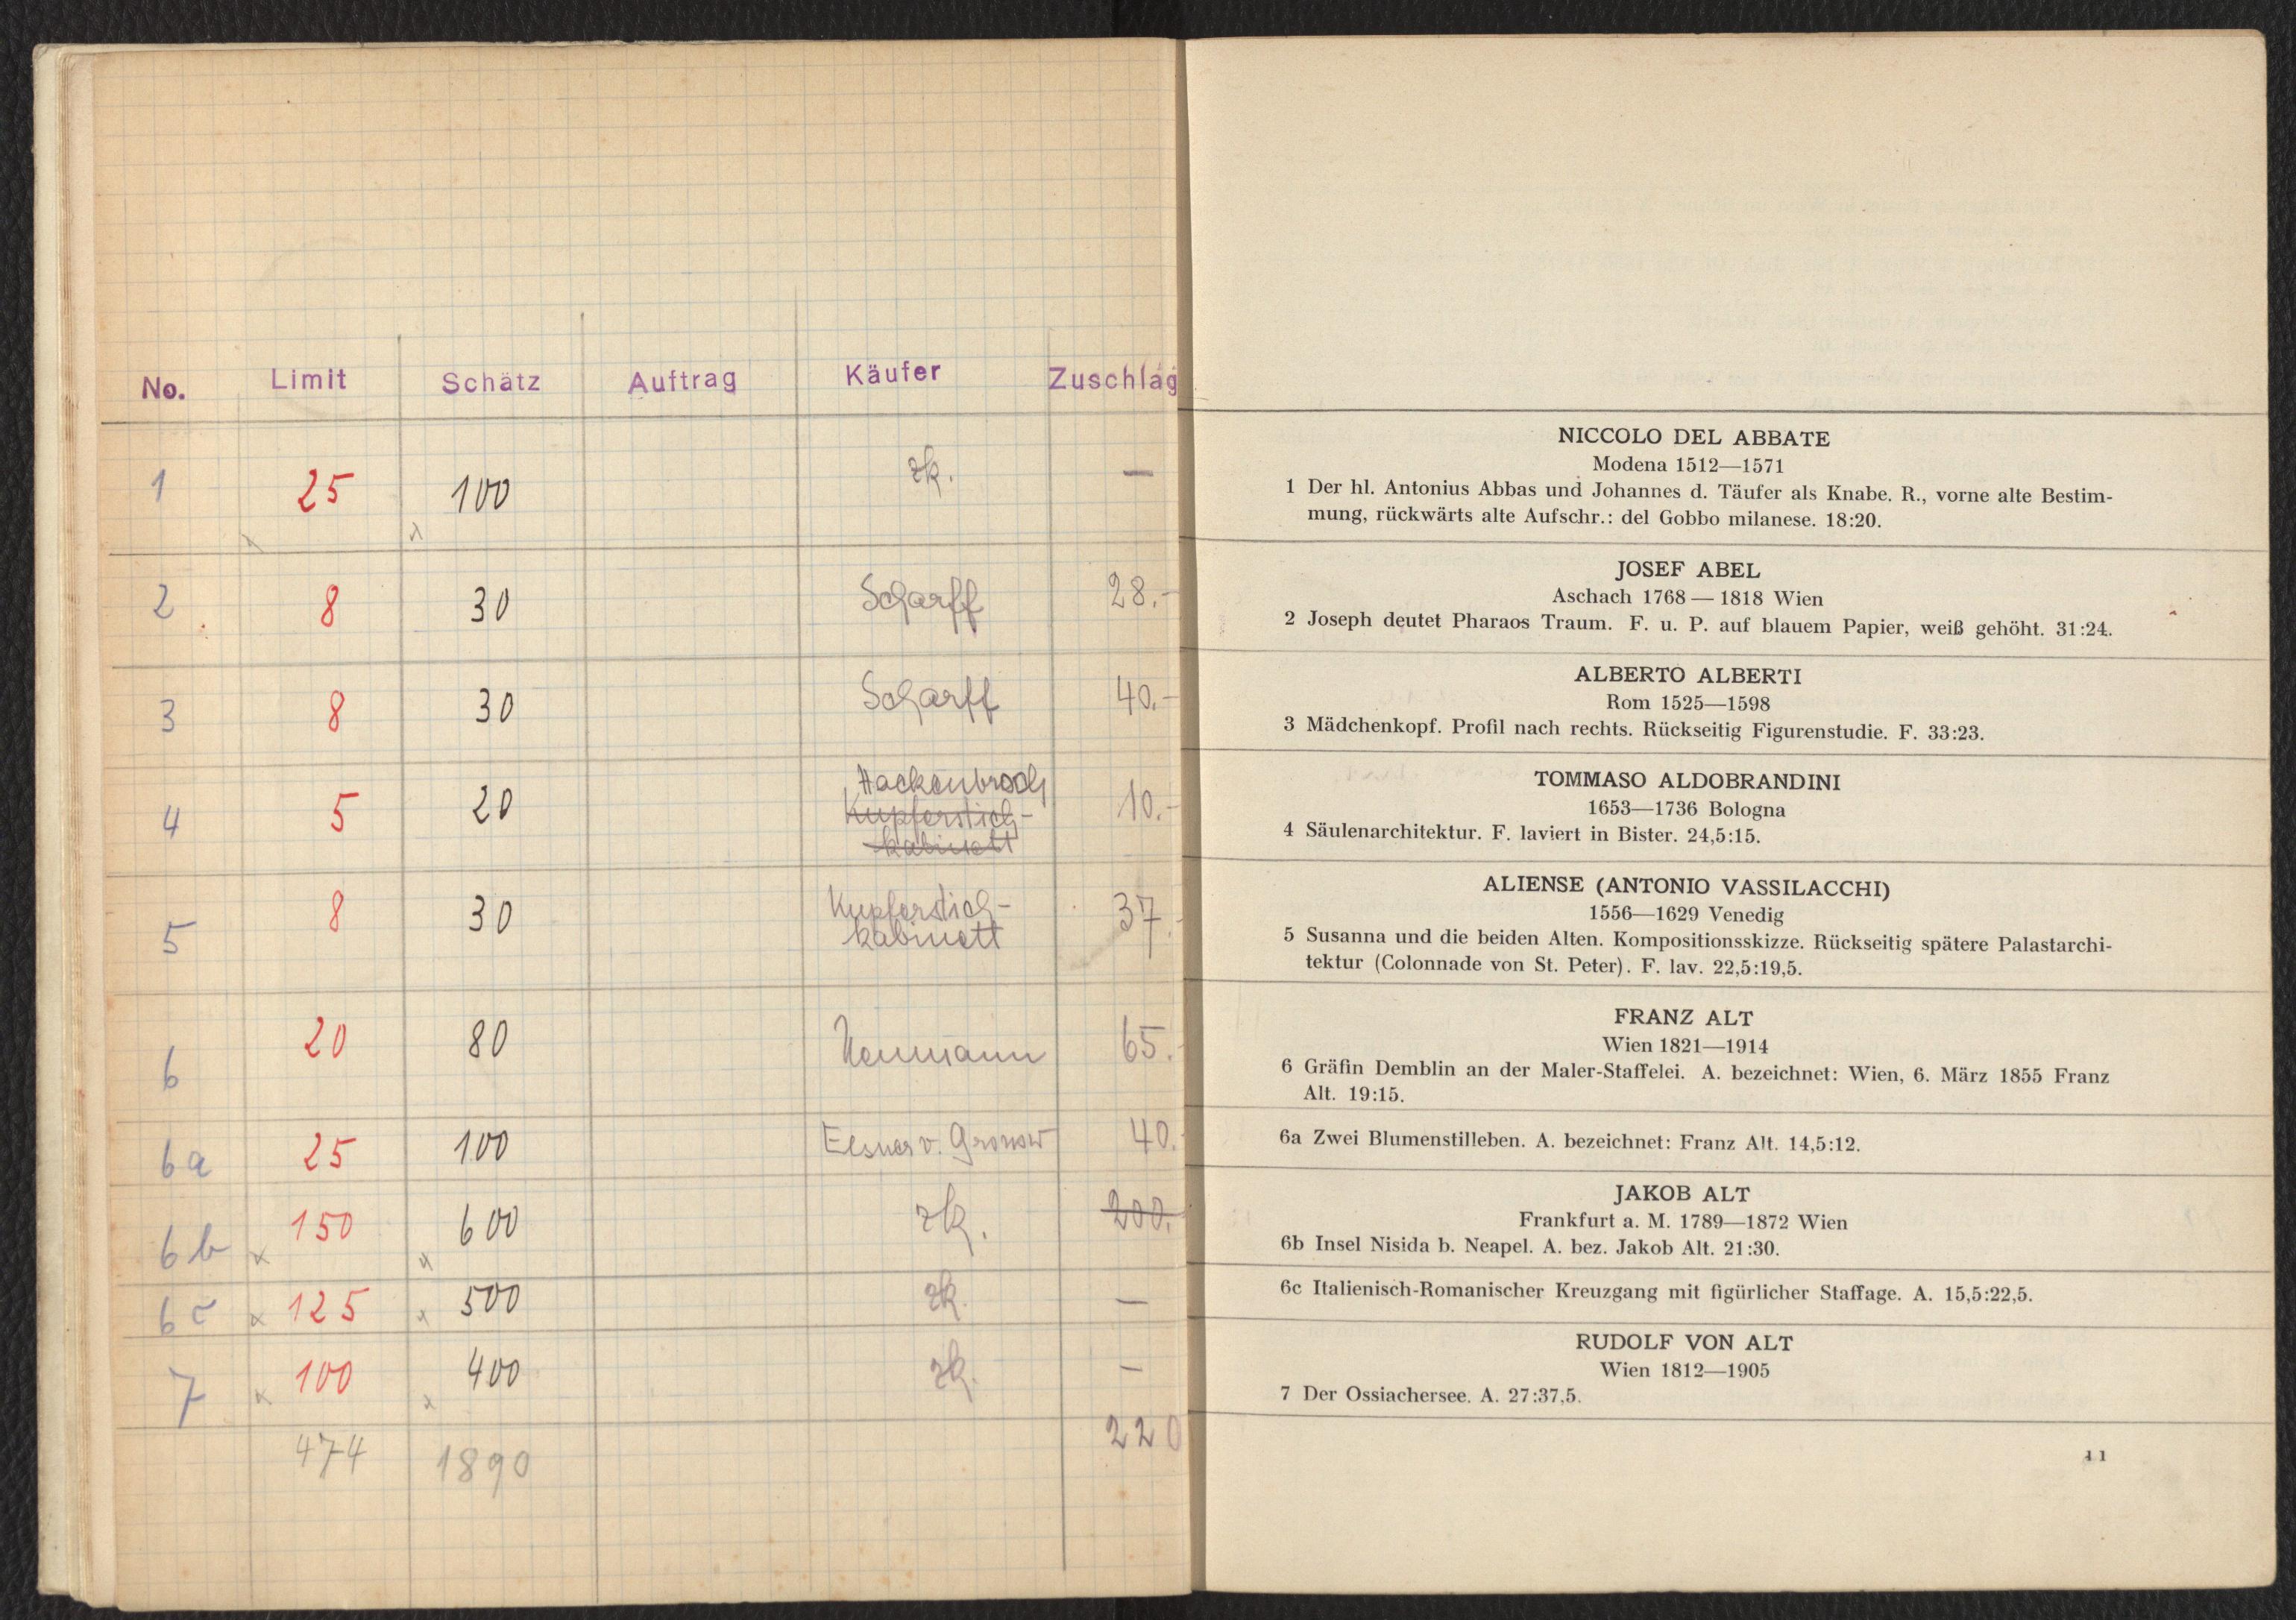 No. Limit Schätz Auftrag Käufer Zuschlag
1 25 100 zk. —
2 8 30 Scharff 28.-
3 8 30 Scharff 40.-
4 5 20 Hackenbroch 10.-
Kupferstich-
kabinett
5 8 30 Kupferstich- 37.-
kabinett
6 20 80 Neumann 65.-
6a 25 100 Elsner v. Gronow 40.-
6b x 150 x 600 zk. 200.
6c x 125 x 500 zk. —
7 x 100 x 400 zk. —
474 1890 220
NICCOLO DEL ABBATE
Modena 1512—1571
1 Der hl. Antonius Abbas und Johannes d. Täufer als Knabe. R., vorne alte Bestim-
mung, rückwärts alte Aufschr.: del Gobbo milanese. 18:20.
JOSEF ABEL
Aschach 1768 — 1818 Wien
2 Joseph deutet Pharaos Traum. F. u. P. auf blauem Papier, weiß gehöht. 31:24.
ALBERTO ALBERTI
Rom 1525—1598
3 Mädchenkopf. Profil nach rechts. Rückseitig Figurenstudie. F. 33:23.
TOMMASO ALDOBRANDINI
1653—1736 Bologna
4 Säulenarchitektur. F. laviert in Bister. 24,5:15.
ALIENSE (ANTONIO VASSILACCHI)
1556—1629 Venedig
5 Susanna und die beiden Alten. Kompositionsskizze. Rückseitig spätere Palastarchi-
tektur (Colonnade von St. Peter). F. lav. 22,5:19,5.
FRANZ ALT
Wien 1821—1914
6 Gräfin Demblin an der Maler-Staffelei. A. bezeichnet: Wien, 6. März 1855 Franz
Alt. 19:15.
6a Zwei Blumenstilleben. A. bezeichnet: Franz Alt. 14,5:12.
JAKOB ALT
Frankfurt a. M. 1789—1872 Wien
6b Insel Nisida b. Neapel. A. bez. Jakob Alt. 21:30.
6c Italienisch-Romanischer Kreuzgang mit figürlicher Staffage. A. 15,5:22,5.
RUDOLF VON ALT
Wien 1812—1905
7 Der Ossiachersee. A. 27:37,5.
11